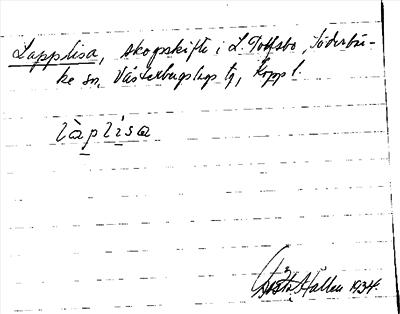 Lapplisa, skogskifte i L. Dolfsbo, Söderbär-
ke sn, Västerbergslags tg, Koppl.
làplisa
Hallen 1934.